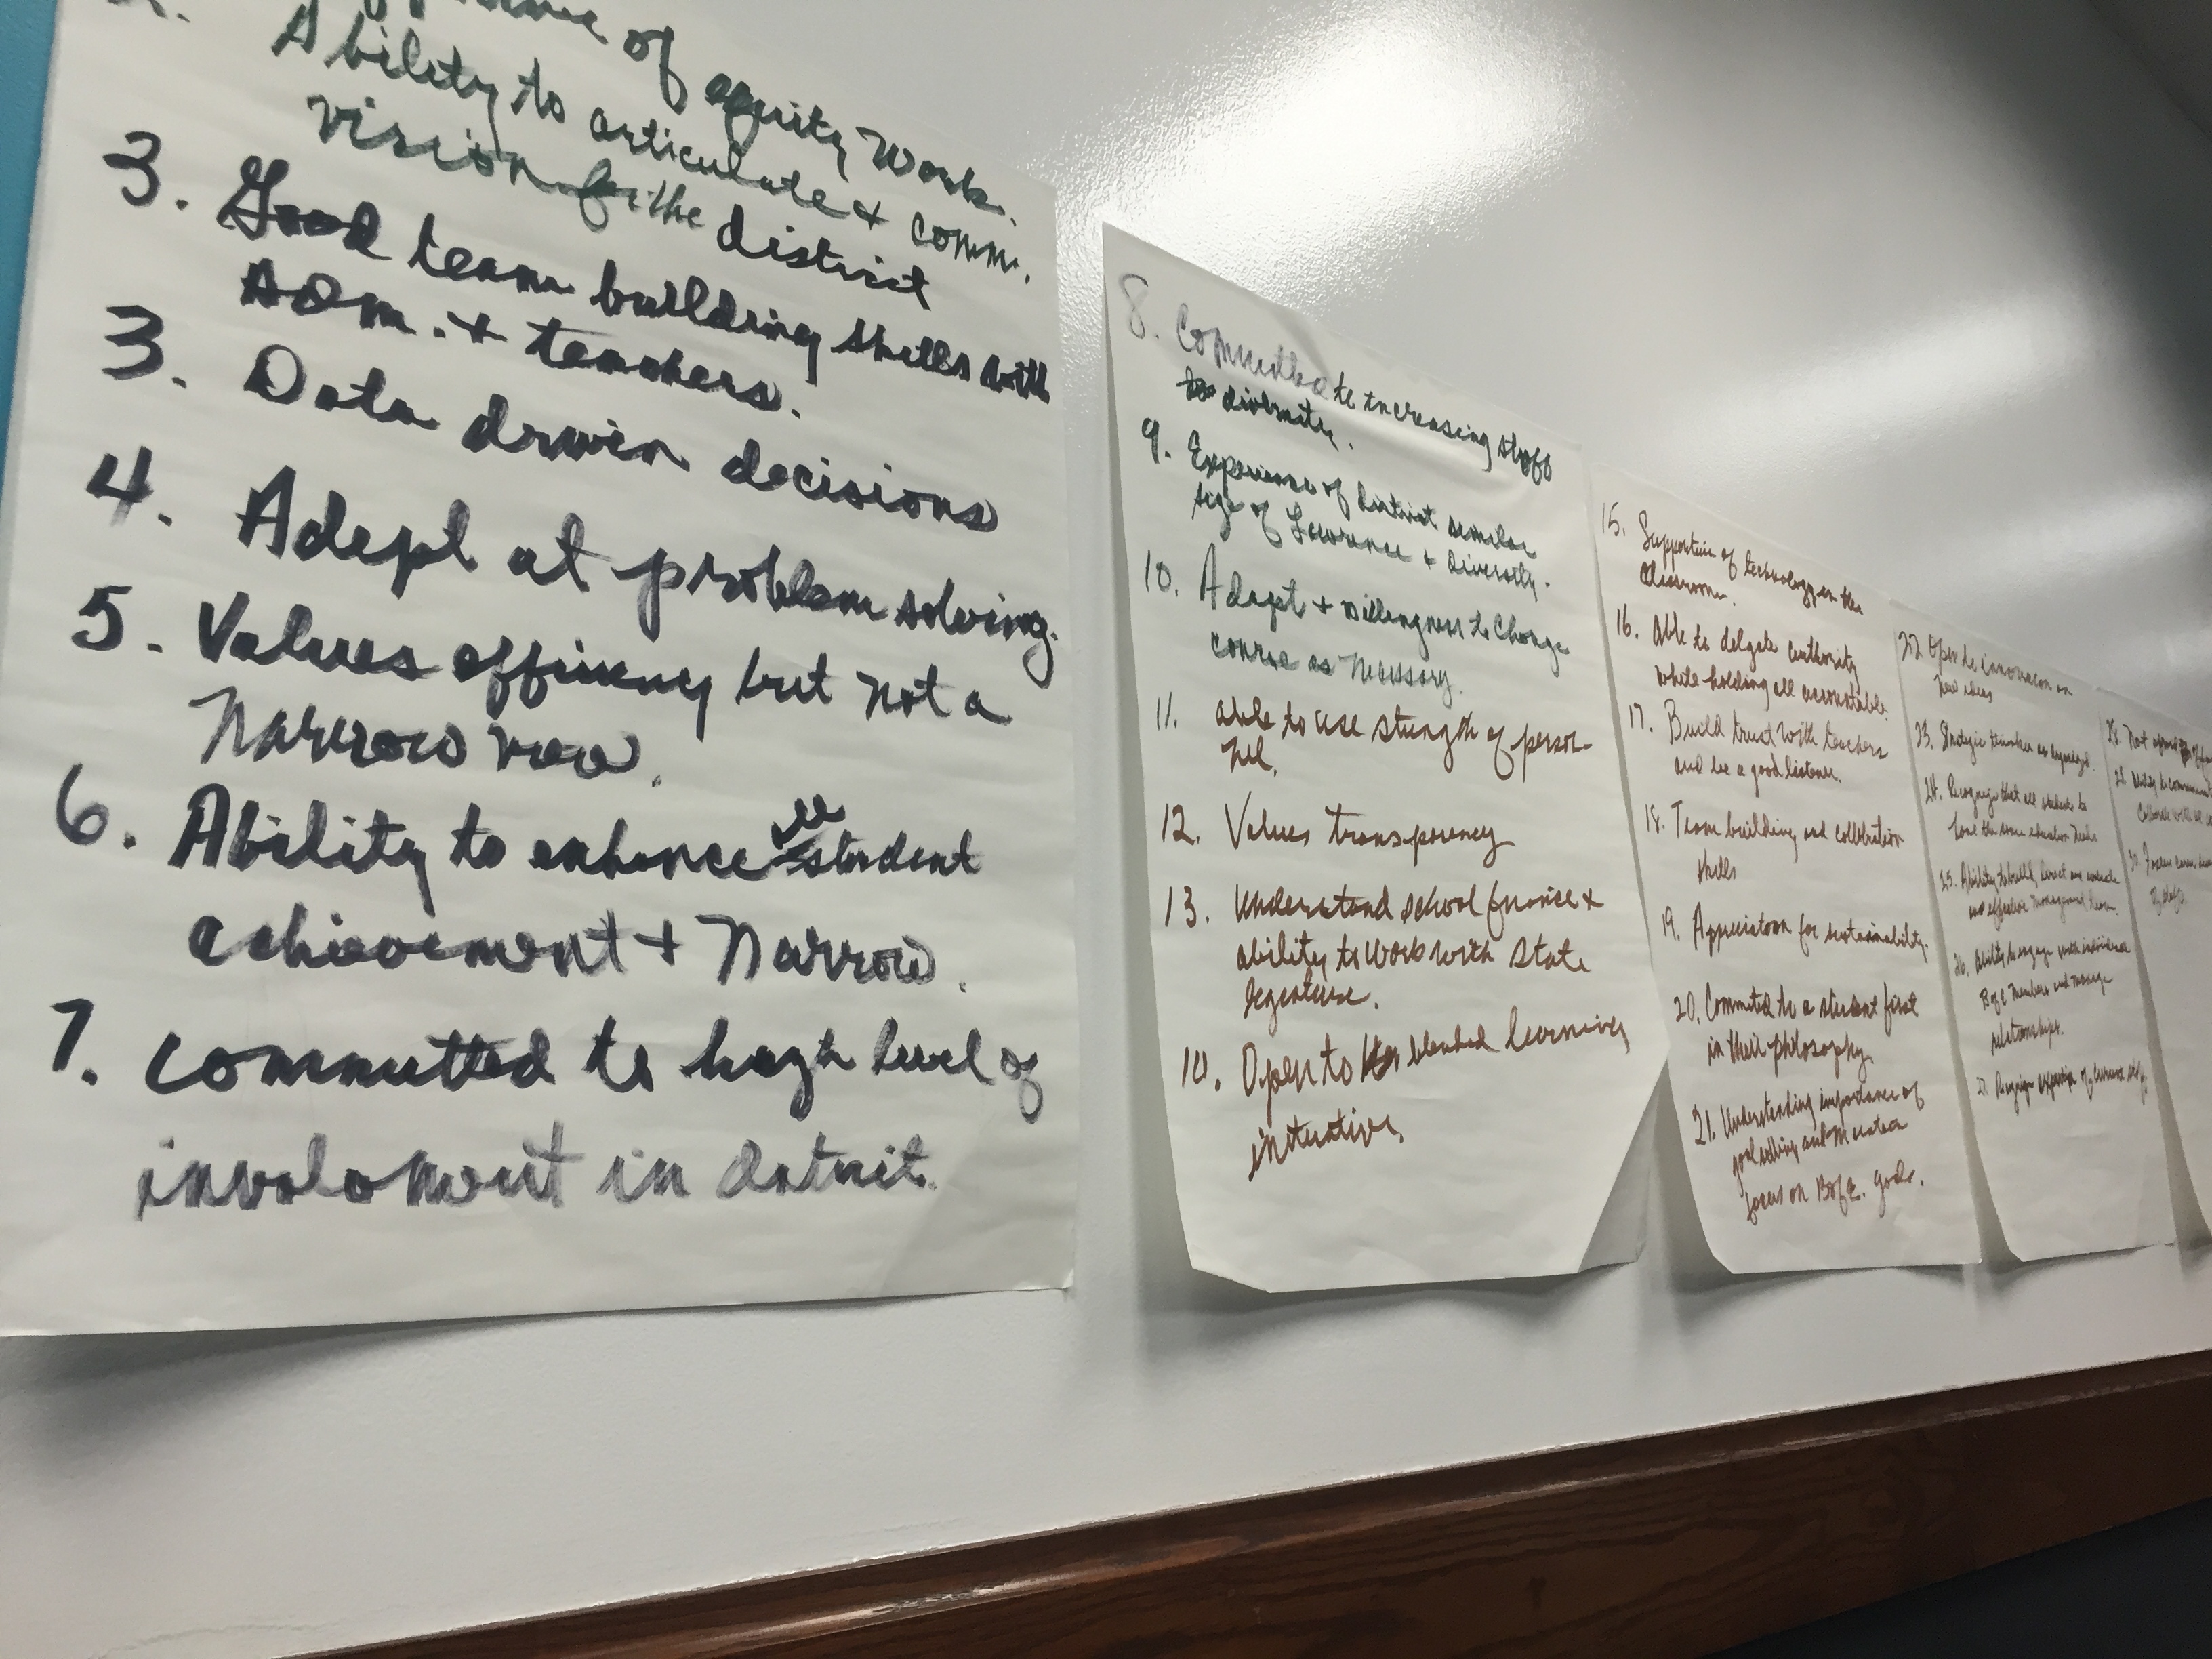 of equity work.
Ability to articulate & comm.
vision for the district
3. Good team building skills with
ADM. + teachers.
3. Data driven decisions
4. Adept at problem solving.
5. Values efficiency but not a
narrow view.
6. Ability to enhance all student
achievement + narrow.
7. committed to high level of
involvement in district.
8. Committed to increasing staff
diversity.
9. Experience of district similar
size of Lawrence + diversity.
10. Adapt + willingness to change
course as necessary.
11. able to use strength of person-
nel.
12. Values transparency
13. Understand school finance +
ability to work with state
legislature.
14. Open to blended learning
initiative.
15. Supportive of technology in the
classroom.
16. Able to delgate authority
while holding all accountable.
17. Build trust with teachers
and be a good listener.
18. Team building and collbration
skills
19. Appreciation for sustainability.
20. Commited to a student first
in their philosophy.
21. Understanding importance of
goal setting and
focus on BofE. goals.
22 Open to innovation or
new ideas
23. Strategic thinker
24. Recognize that all students
have the same education needs
25. Ability to build, direct and evaluate
an effective management team.
26. Ability to engage with individual
BofE members and manage
relationships.
27. Recognize expertise of current staff.
28. Not afraid
29. Ability to
30.